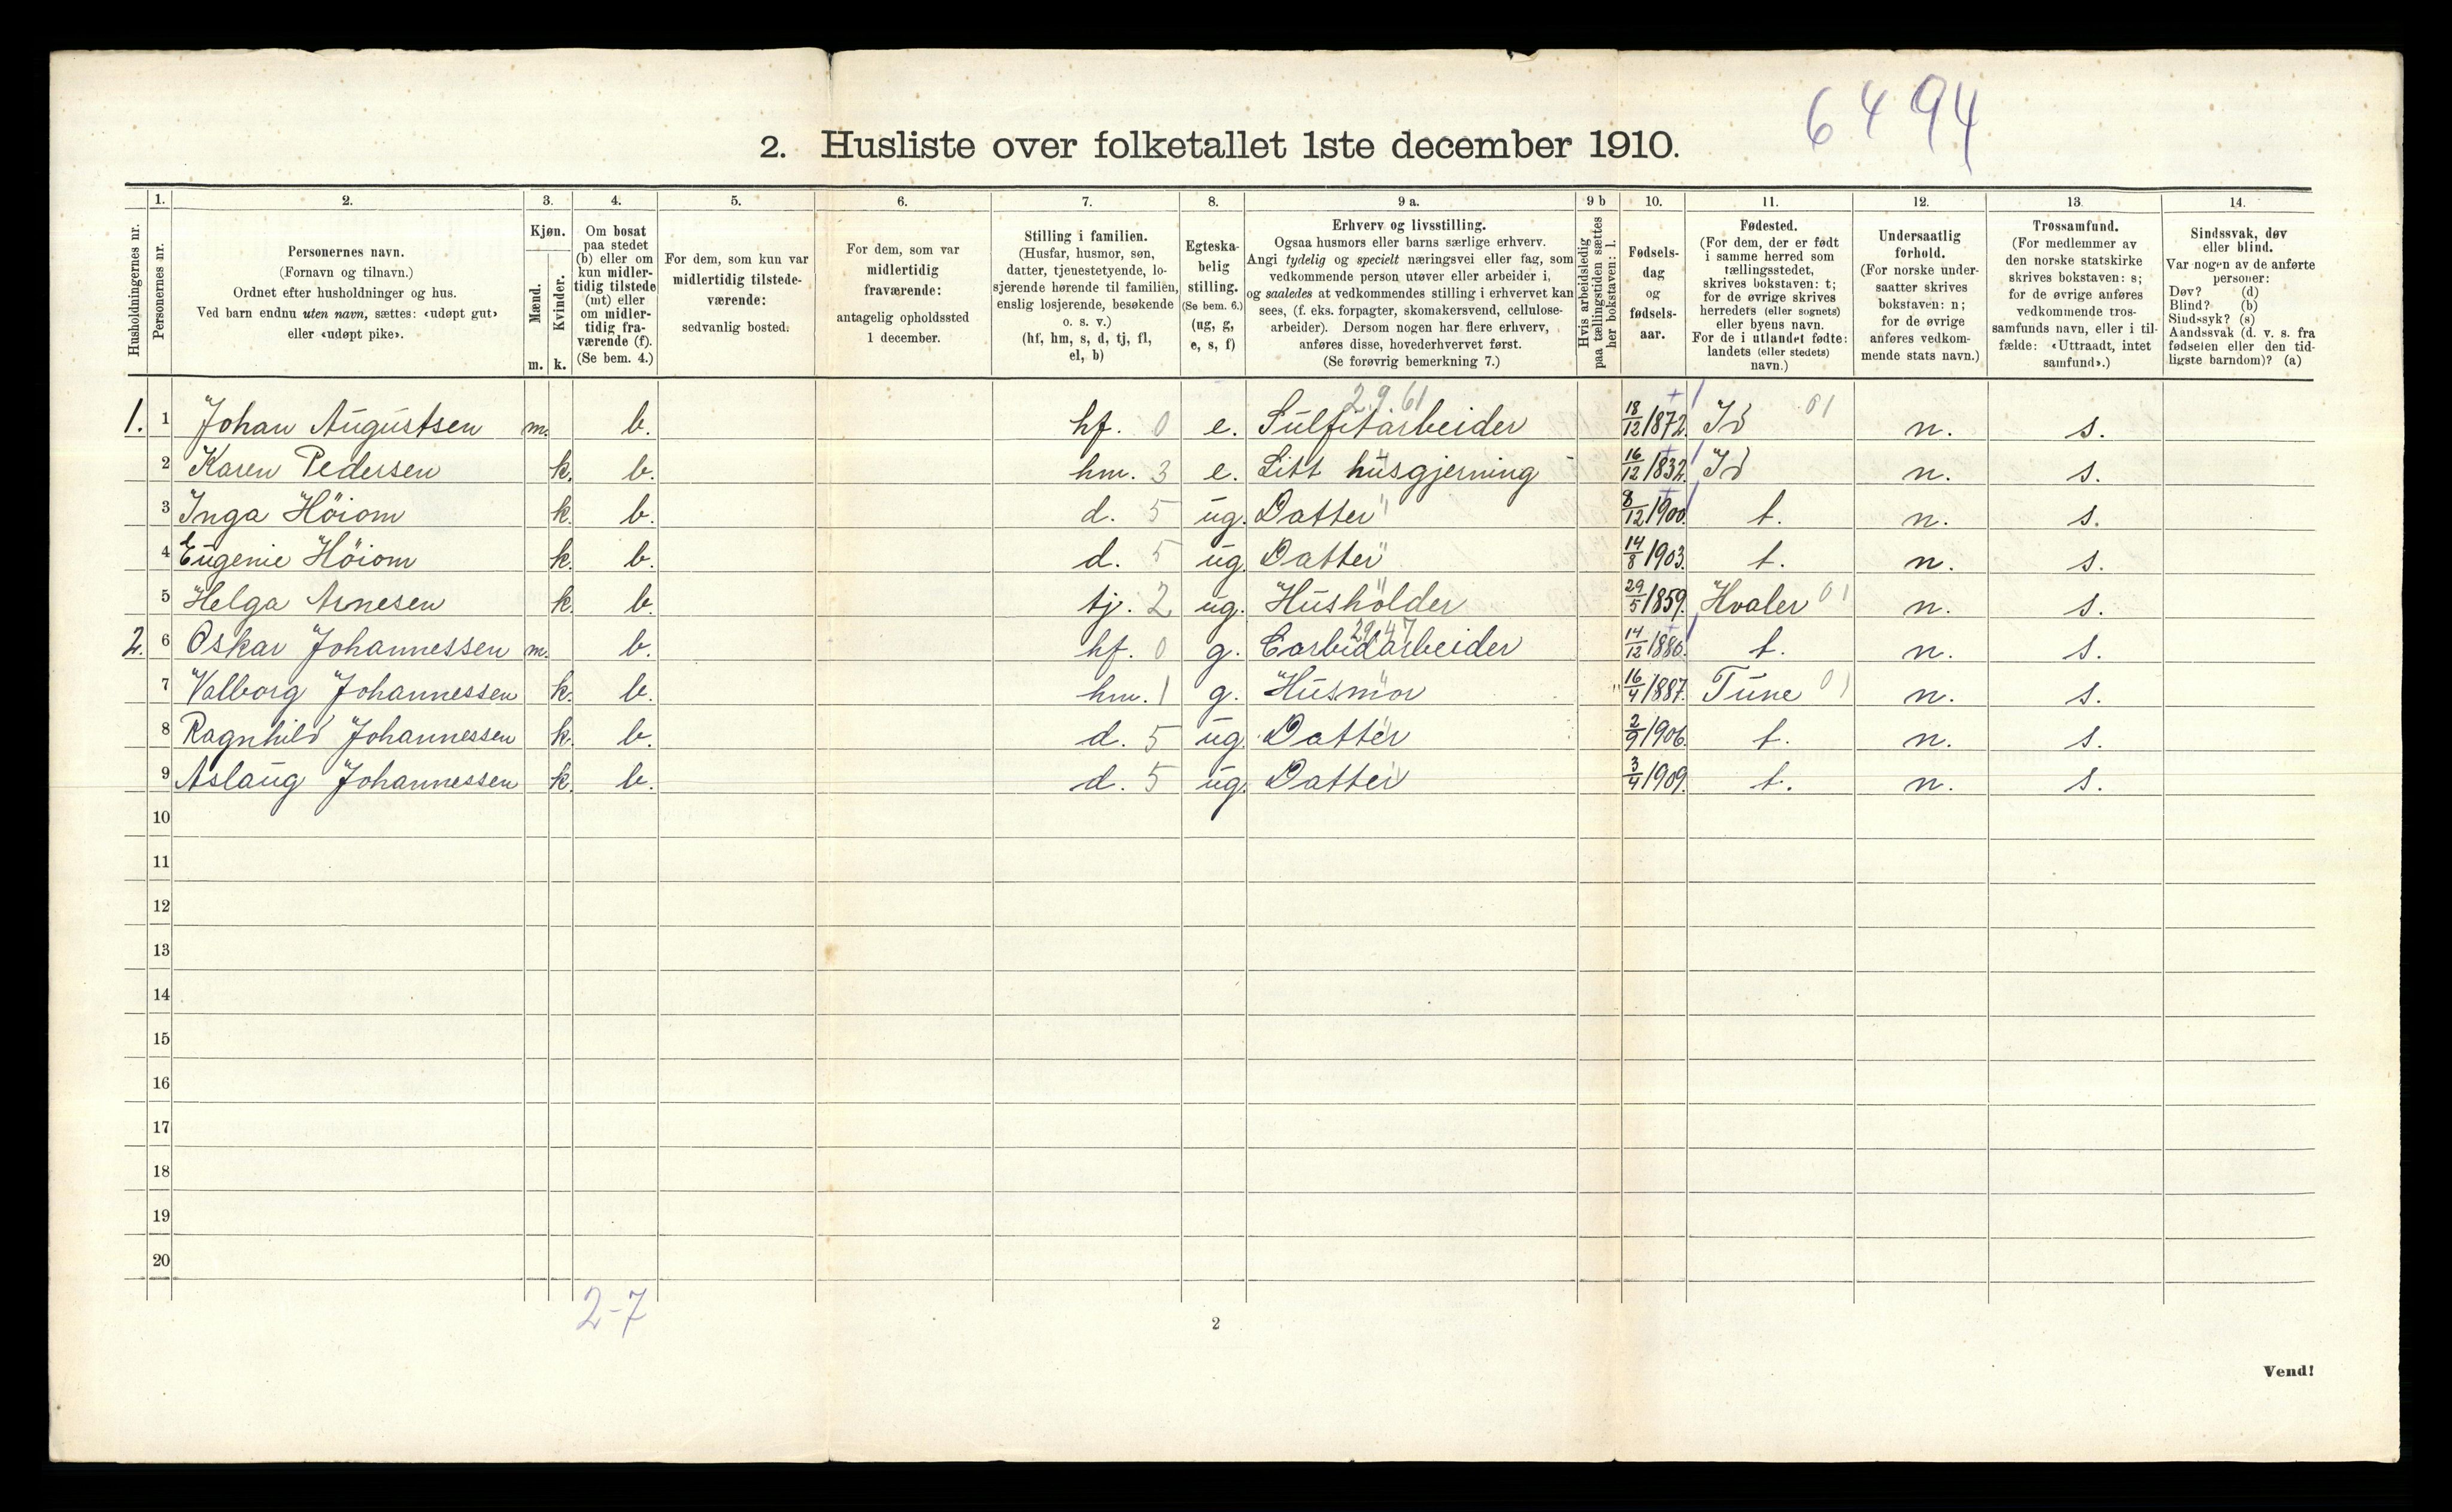 6494
2. Husliste over folketallet 1ste december 1910.
Husholdningernes nr.
1.
Personernes nr.
2.
Personernes navn.
(Fornavn og tilnavn.)
Ordnet efter husholdninger og hus.
Ved barn endnu uten navn, sættes: «udøpt gut»
eller «udøpt pike».
3.
Kjøn.
Mænd.
Kvinder.
m. k.
4.
Om bosat
paa stedet
(b) eller om
kun midler-
tidig tilstede
(mt) eller
om midler-
tidig fra-
værende (f).
(Se bem. 4.)
5.
For dem, som kun var
midlertidig tilstede-
værende:
sedvanlig bosted.
6.
For dem, som var
midlertidig
fraværende:
antagelig opholdssted
1 december.
7.
Stilling i familien.
(Husfar, husmor, søn,
datter, tjenestetyende, lo-
sjerende hørende til familien,
enslig losjerende, besøkende
o. s. v.)
(hf, hm, s, d, tj, fl,
el, b)
8.
Egteska-
belig
stilling.
(Se bem. 6.)
(ug, g,
e, s, f)
9 a.
Erhverv og livsstilling.
Ogsaa husmors eller barns særlige erhverv.
Angi tydelig og specielt næringsvei eller fag, som
vedkommende person utøver eller arbeider i,
og saaledes at vedkommendes stilling i erhvervet kan
sees, (f. eks. forpagter, skomakersvend, cellulose-
arbeider). Dersom nogen har flere erhverv,
anføres disse, hovederhvervet først.
(Se forøvrig bemerkning 7.)
9 b
Hvis arbeidsledig
paa tællingstiden sættes
her bokstaven: l.
10.
Fødsels-
dag
og
fødsels-
aar.
11.
Fødested.
(For dem, der er født
i samme herred som
tællingsstedet,
skrives bokstaven: t;
for de øvrige skrives
herredets (eller sognets)
eller byens navn.
For de i utlandet fødte:
landets (eller stedets)
navn.)
12.
Undersaatlig
forhold.
(For norske under-
saatter skrives
bokstaven: n;
for de øvrige
anføres vedkom-
mende stats navn.)
13.
Trossamfund.
(For medlemmer av
den norske statskirke
skrives bokstaven: s;
for de øvrige anføres
vedkommende tros-
samfunds navn, eller i til-
fælde: «Uttraadt, intet
samfund».)
14.
Sindssvak, døv
eller blind.
Var nogen av de anførte
personer:
Døv? (d)
Blind? (b)
Sindssyk? (s)
Aandssvak (d. v. s. fra
fødselen eller den tid-
ligste barndom)? (a)
1. 1 Johan Augustsen m. b. hf. 0 e. Sulfitarbeider 2.9.61 18/12 1872. Id 01 n. s.
2 Karen Pedersen k. b. hm. 3 e. Litt husgjerning 16/12 1832. Id n. s.
3 Inga Höiom k. b. d. 5 ug. Datter 8/12 1900. t. n. s.
4 Eugenie Höiom k. b. d. 5 ug. Datter 14/8 1903. t. n. s.
5 Helga Arnesen k. b. tj. 2 ug. Husholder 29/5 1859. Hvaler 01 n. s.
2. 6 Oskar Johannessen m. b. hf. 0 g. Carbidarbeider 29 47 14/12 1886. t. n. s.
7 Valborg Johannessen k. b. hm. 1 g. Husmor 16/4 1887. Tune 01 n. s.
8 Ragnhild Johannessen k. b. d. 5 ug. Datter 2/9 1906. t. n. s.
9 Aslaug Johannessen k. b. d. 5 ug. Datter 3/4 1909. t. n. s.
10
11
12
13
14
15
16
17
18
19
20
2-7
2
Vend!